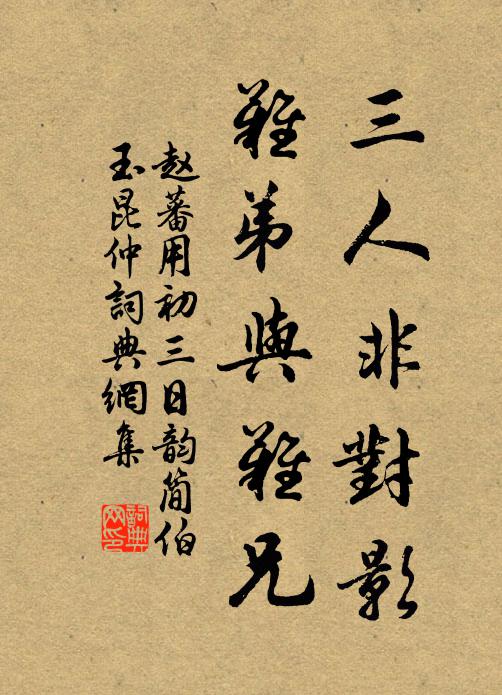 三人非對影
難弟與難兄
赵蕃用初三日韵简伯
玉昆仲詞典網集
詞典
网印